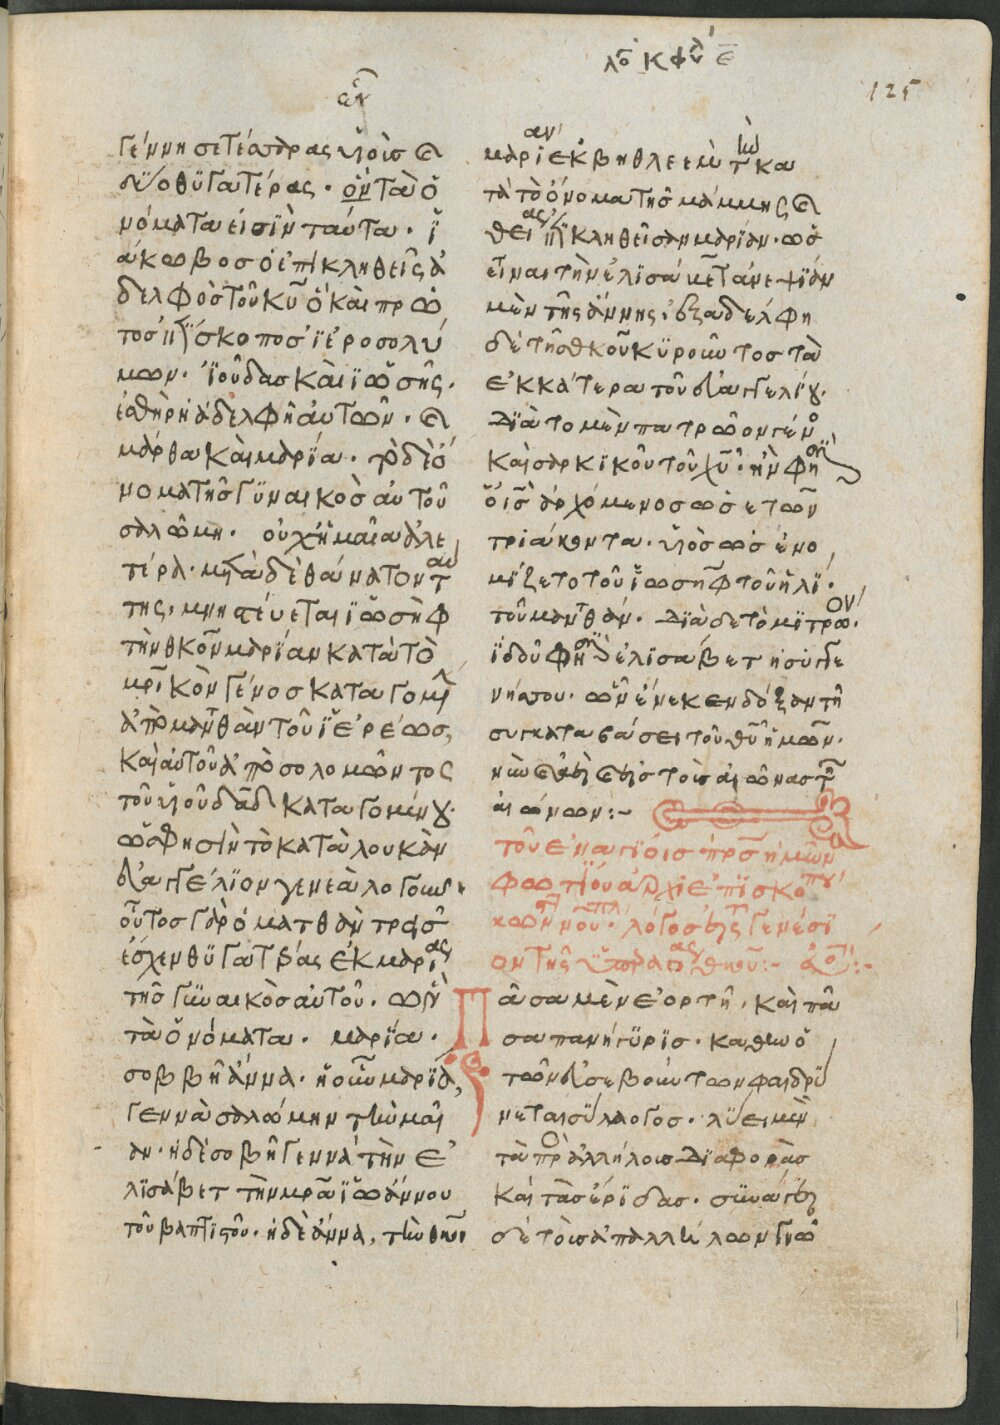 125
γέννησε τέσσαρας υἱοὺς καὶ
δύο θυγατέρας. ὧν τὰ ὀ
νόματα εἰσὶν ταῦτα. ἰ
άκωβος ὁ ἐπικληθεὶς ἀ
δελφὸς τοῦ κυ ὁ καὶ πρῶ
τος ἐπίσκοπος ἱεροσολύ
μων. ἰούδας καὶ ἰωσῆς.
ἐσθὴρ ἡ ἀδελφὴ αὐτῶν. καὶ
μάρθα καὶ μαρία. τὸ δὲ ὄ
νομα τῆς γυναικὸς αὐτοῦ
σαλώμη. οὐχ ἡ μαῖα ἀλλ ε
τέρα. μετὰ δὲ θάνατον ταύ
της, μνηστεύεται ἰωσὴφ
τὴν θκον μαρίαν κατὰ τὸ
μρικὸν γένος καταγομέν
ἀπὸ μανθὰν τοῦ ἱερέως,
καὶ αὐτοῦ ἀπὸ σολομῶντος
τοῦ υἱοῦ δαδ καταγομένου.
ὥς φησὶν τὸ κατὰ λουκὰν
εὐαγγέλιον γενεαλογοῦν.
οὗτος γὰρ ὁ ματθὰν τρεῖς
ἔσχεν θυγατέρας ἐκ μαρίας
τῆς γυναικὸς αὐτοῦ. ὧν
τὰ ὀνόματα. μαρία.
σοββῆ ἄννα. ἡ οὖν μαρία,
γεννᾶ σαλώμην τὴν μαῖ
αν. ἡ δὲ σοβῆ γεννᾶ τὴν ἐ
λισάβετ τὴν μρα ἰωάννου
τοῦ βαπτιστοῦ. ἡ δὲ ἄννα, τὴν θκον
μαρίαν ἐκ βηθλεὲμ τὴν κα
τὰ τὸ ὄνομα τῆς μάμμης καὶ
θείας ἐπικληθεῖσαν μαρίαν. ὡς
εἶναι τὴν ἐλισάβετ ἀνεψιὰν
μὲν τῆς ἄννης, ἐξαδέλφη
δὲ τῆς θκου κυροῦντος τὰ
ἑκάτερα τοῦ εὐαγγελίου.
διὰ τὸ μὲν πατρῶον γέν
καὶ σαρκικοῦ τοῦ χυ. ἦν φησὶ
ὁ ις ἀρχόμενος ὡς ἐτῶν
τριάκοντα. υἱὸς ὡς ἐνο
μίζετο τοῦ ἰωσὴφ τοῦ ἡλί.
τοῦ μανθάν. διὰ δὲ τὸ μητρῶον.
ἰδοῦ φησὶν ἐλισάβετ ἡ συγγε
νήσου. ὧν ἕνεκεν δόξαν τῇ
συγκαταβάσει τοῦ θυ ἡμῶν.
νῦν καὶ ἀεὶ καὶ εἰς τοὺς αἰῶνας τῶν
αἰώνων:-
τοῦ ἐν ἁγίοις πρς ἡμῶν
φωτίου ἀρχιεπισκόπου
κων πόλ. λόγος εἰς τ γενέσι
ον τῆς ὑπεραγίας θκου:-
Πᾶσα μὲν ἑορτὴ, καὶ πᾶ
σα πανήγυρις. καθ ἣν ὁ
τῶν εὐσεβούντων φαιδρύ
νεται σύλλογος. λύει μὲν
τὰς πρὸς ἀλλήλους διαφορὰς
καὶ τὰς ἔριδας. συνάγει
δὲ τοὺς ἀπ ἀλλήλων γνω